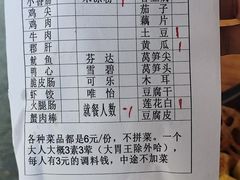 鸡尖 茄子
鸡肉 藕片
牛肉 土豆 1
郡肝 黄瓜 1
鱿鱼 芬达 莴笋头
鸭心 雪碧 莴笋尖
脆皮肠 可乐 木耳
虾饺 唯怡 豆腐干
火腿肠 就餐人数 莲花白 1
蟹肉棒 1 豆腐皮
各种菜品都是6元/份，不拼菜。一个
大人大概3素3荤（大胃王除外哈），
每人有3元的调料钱，中途不加菜